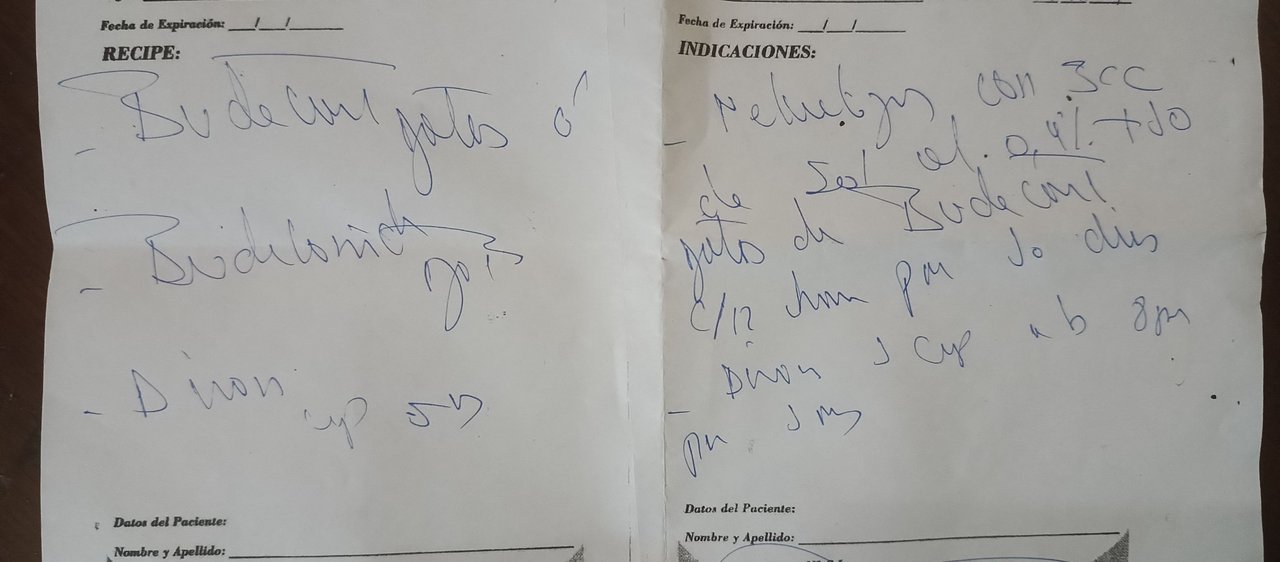 Fecha de Expiración: __/__/____
RECIPE:
- Budecort gotas ó
- Budesonida gotas
- Diron cap
Datos del Paciente:
Nombre y Apellido:
Fecha de Expiración: __/__/____
INDICACIONES:
- Nebulizar con 3cc
de Sol al 0,9% + 10
gotas de Budecort
c/12 horas por 10 dias
- Diron 1 cap 8pm
por 1 mes
Datos del Paciente:
Nombre y Apellido: